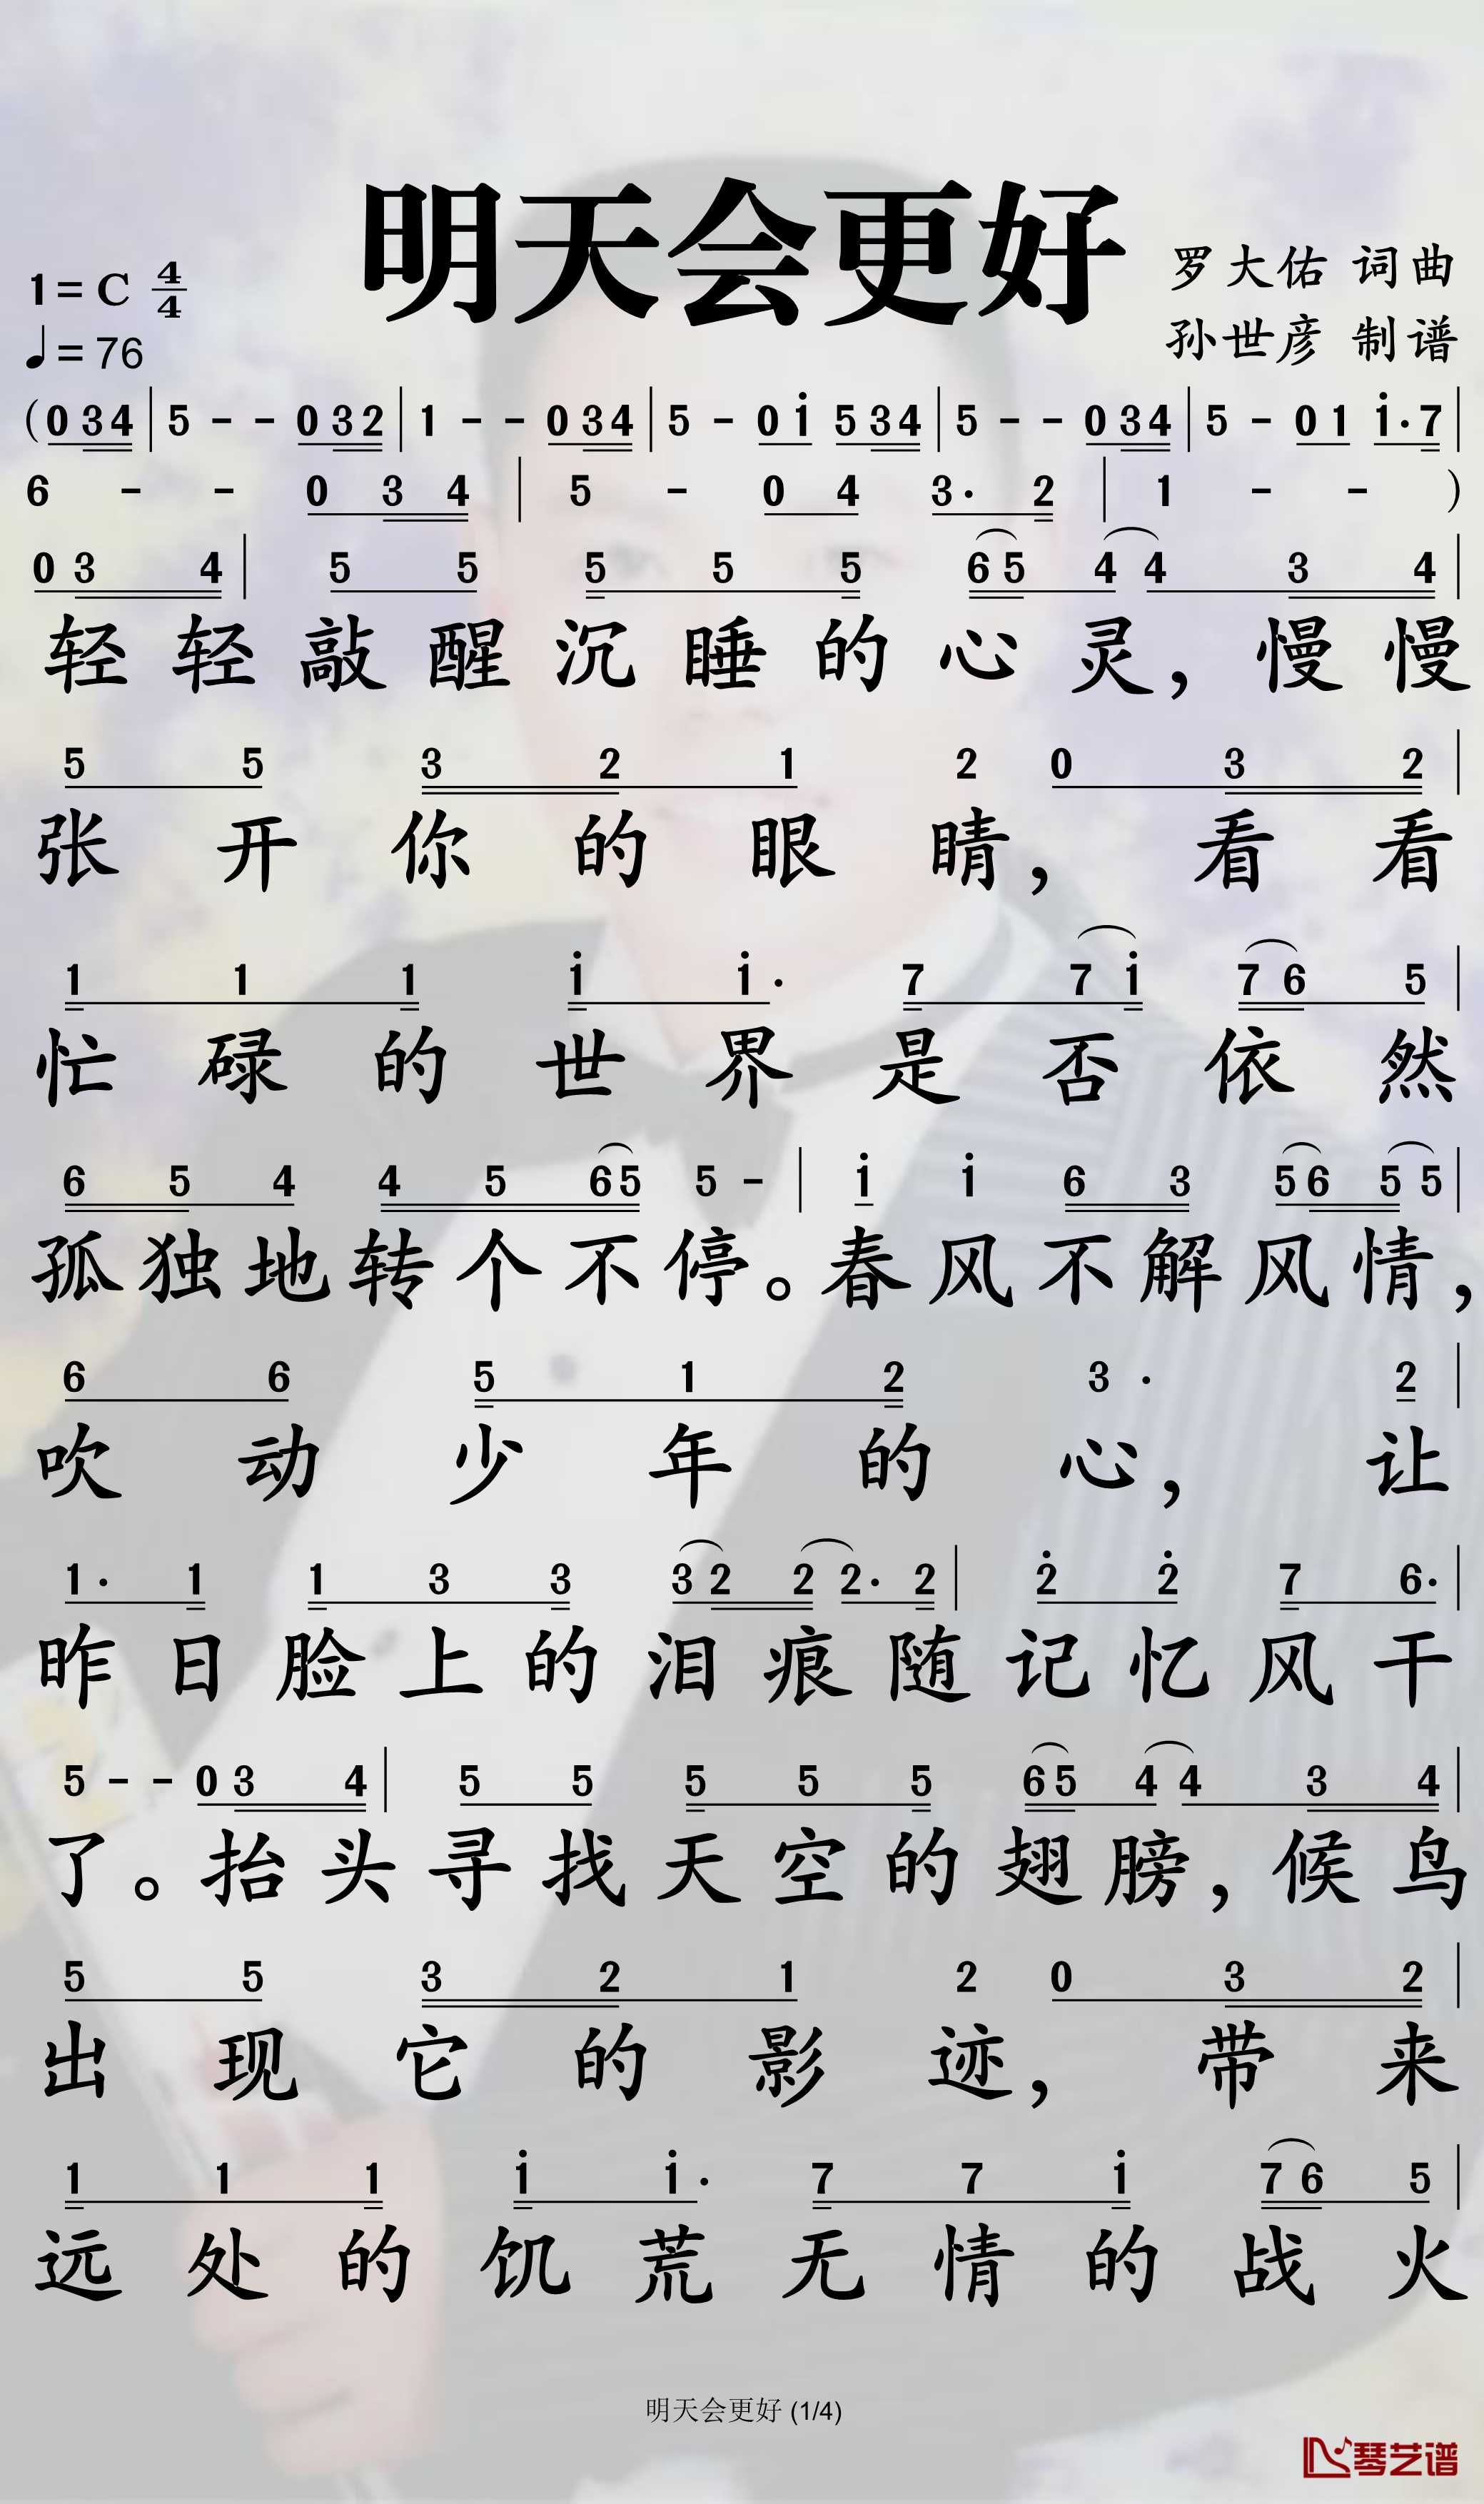 明天会更好
1=C 4/4
罗大佑 词曲
♩=76
孙世彦 制谱
(0 3 4 | 5 - - 0 3 2 | 1 - - 0 3 4 | 5 - 0 i 5 3 4 | 5 - - 0 3 4 | 5 - 0 1 i· 7 |
6 - - 0 3 4 | 5 - 0 4 3· 2 | 1 - - )
0 3 4 | 5 5 5 5 5 6 5 4 4 3 4 |
轻轻敲醒沉睡的心灵，慢慢
5 5 3 2 1 2 0 3 2 |
张开你的眼睛，看看
1 1 1 i i· 7 7 i 7 6 5 |
忙碌的世界是否依然
6 5 4 4 5 6 5 5 - | i i 6 3 5 6 5 5 |
孤独地转个不停。春风不解风情，
6 6 5 1 2 3· 2 |
吹动少年的心，让
1· 1 1 3 3 3 2 2 2· 2 | 2 2 7 6· |
昨日脸上的泪痕随记忆风干
5 - - 0 3 4 | 5 5 5 5 5 6 5 4 4 3 4 |
了。抬头寻找天空的翅膀，候鸟
5 5 3 2 1 2 0 3 2 |
出现它的影迹，带来
1 1 1 i i· 7 7 i 7 6 5 |
远处的饥荒无情的战火
明天会更好 (1/4)
琴艺谱